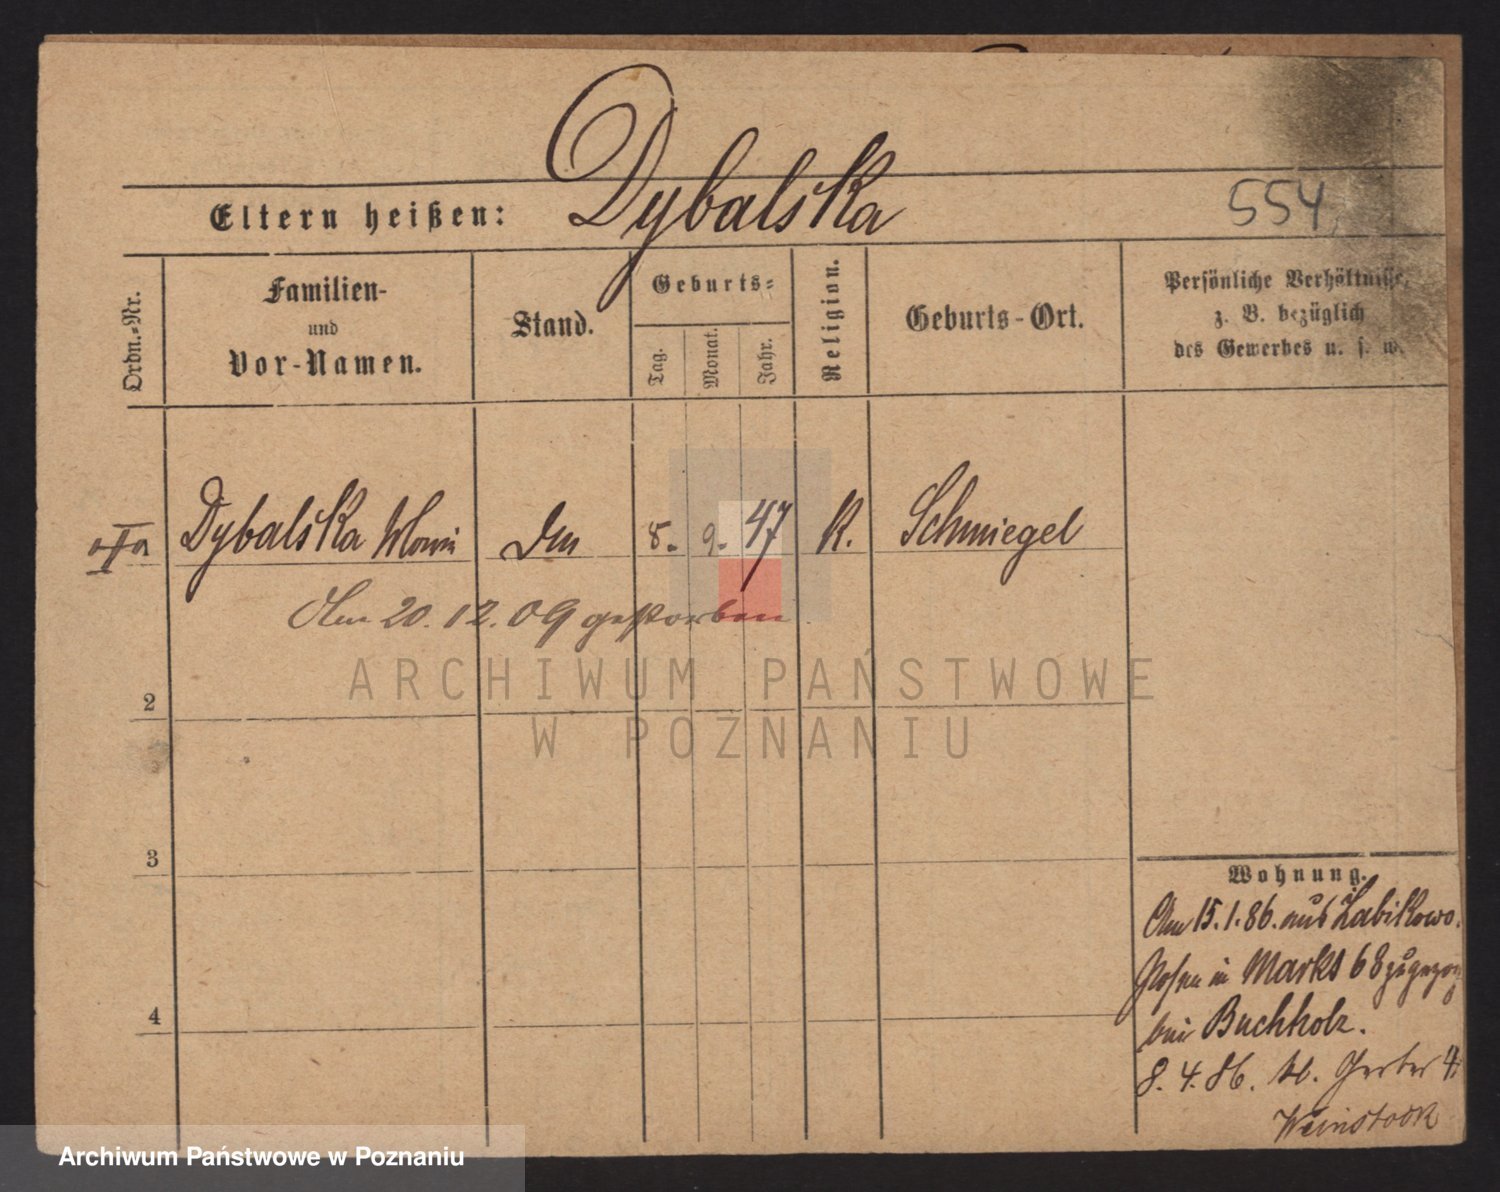 Dybalska
Eltern heißen:
554
Ordn.-Nr.
Familien-
und
Vor-Namen.
Stand.
Geburts-
Tag.
Monat.
Jahr.
Religion.
Geburts-Ort.
Persönliche Verhältnisse,
z. B. bezüglich
des Gewerbes u. s. w.
Dybalska 8. 9. 47 K. Schmiegel
Am 20.12.09 gestorben
ARCHIWUM PAŃSTWOWE
W POZNANIU
2
3
4
Wohnung.
Am 15.1.86. aus Zabikowo.
in Markt 68
bei Buchholz.
8.4.86. Gerber 4
Weinstock
Archiwum Państwowe w Poznaniu